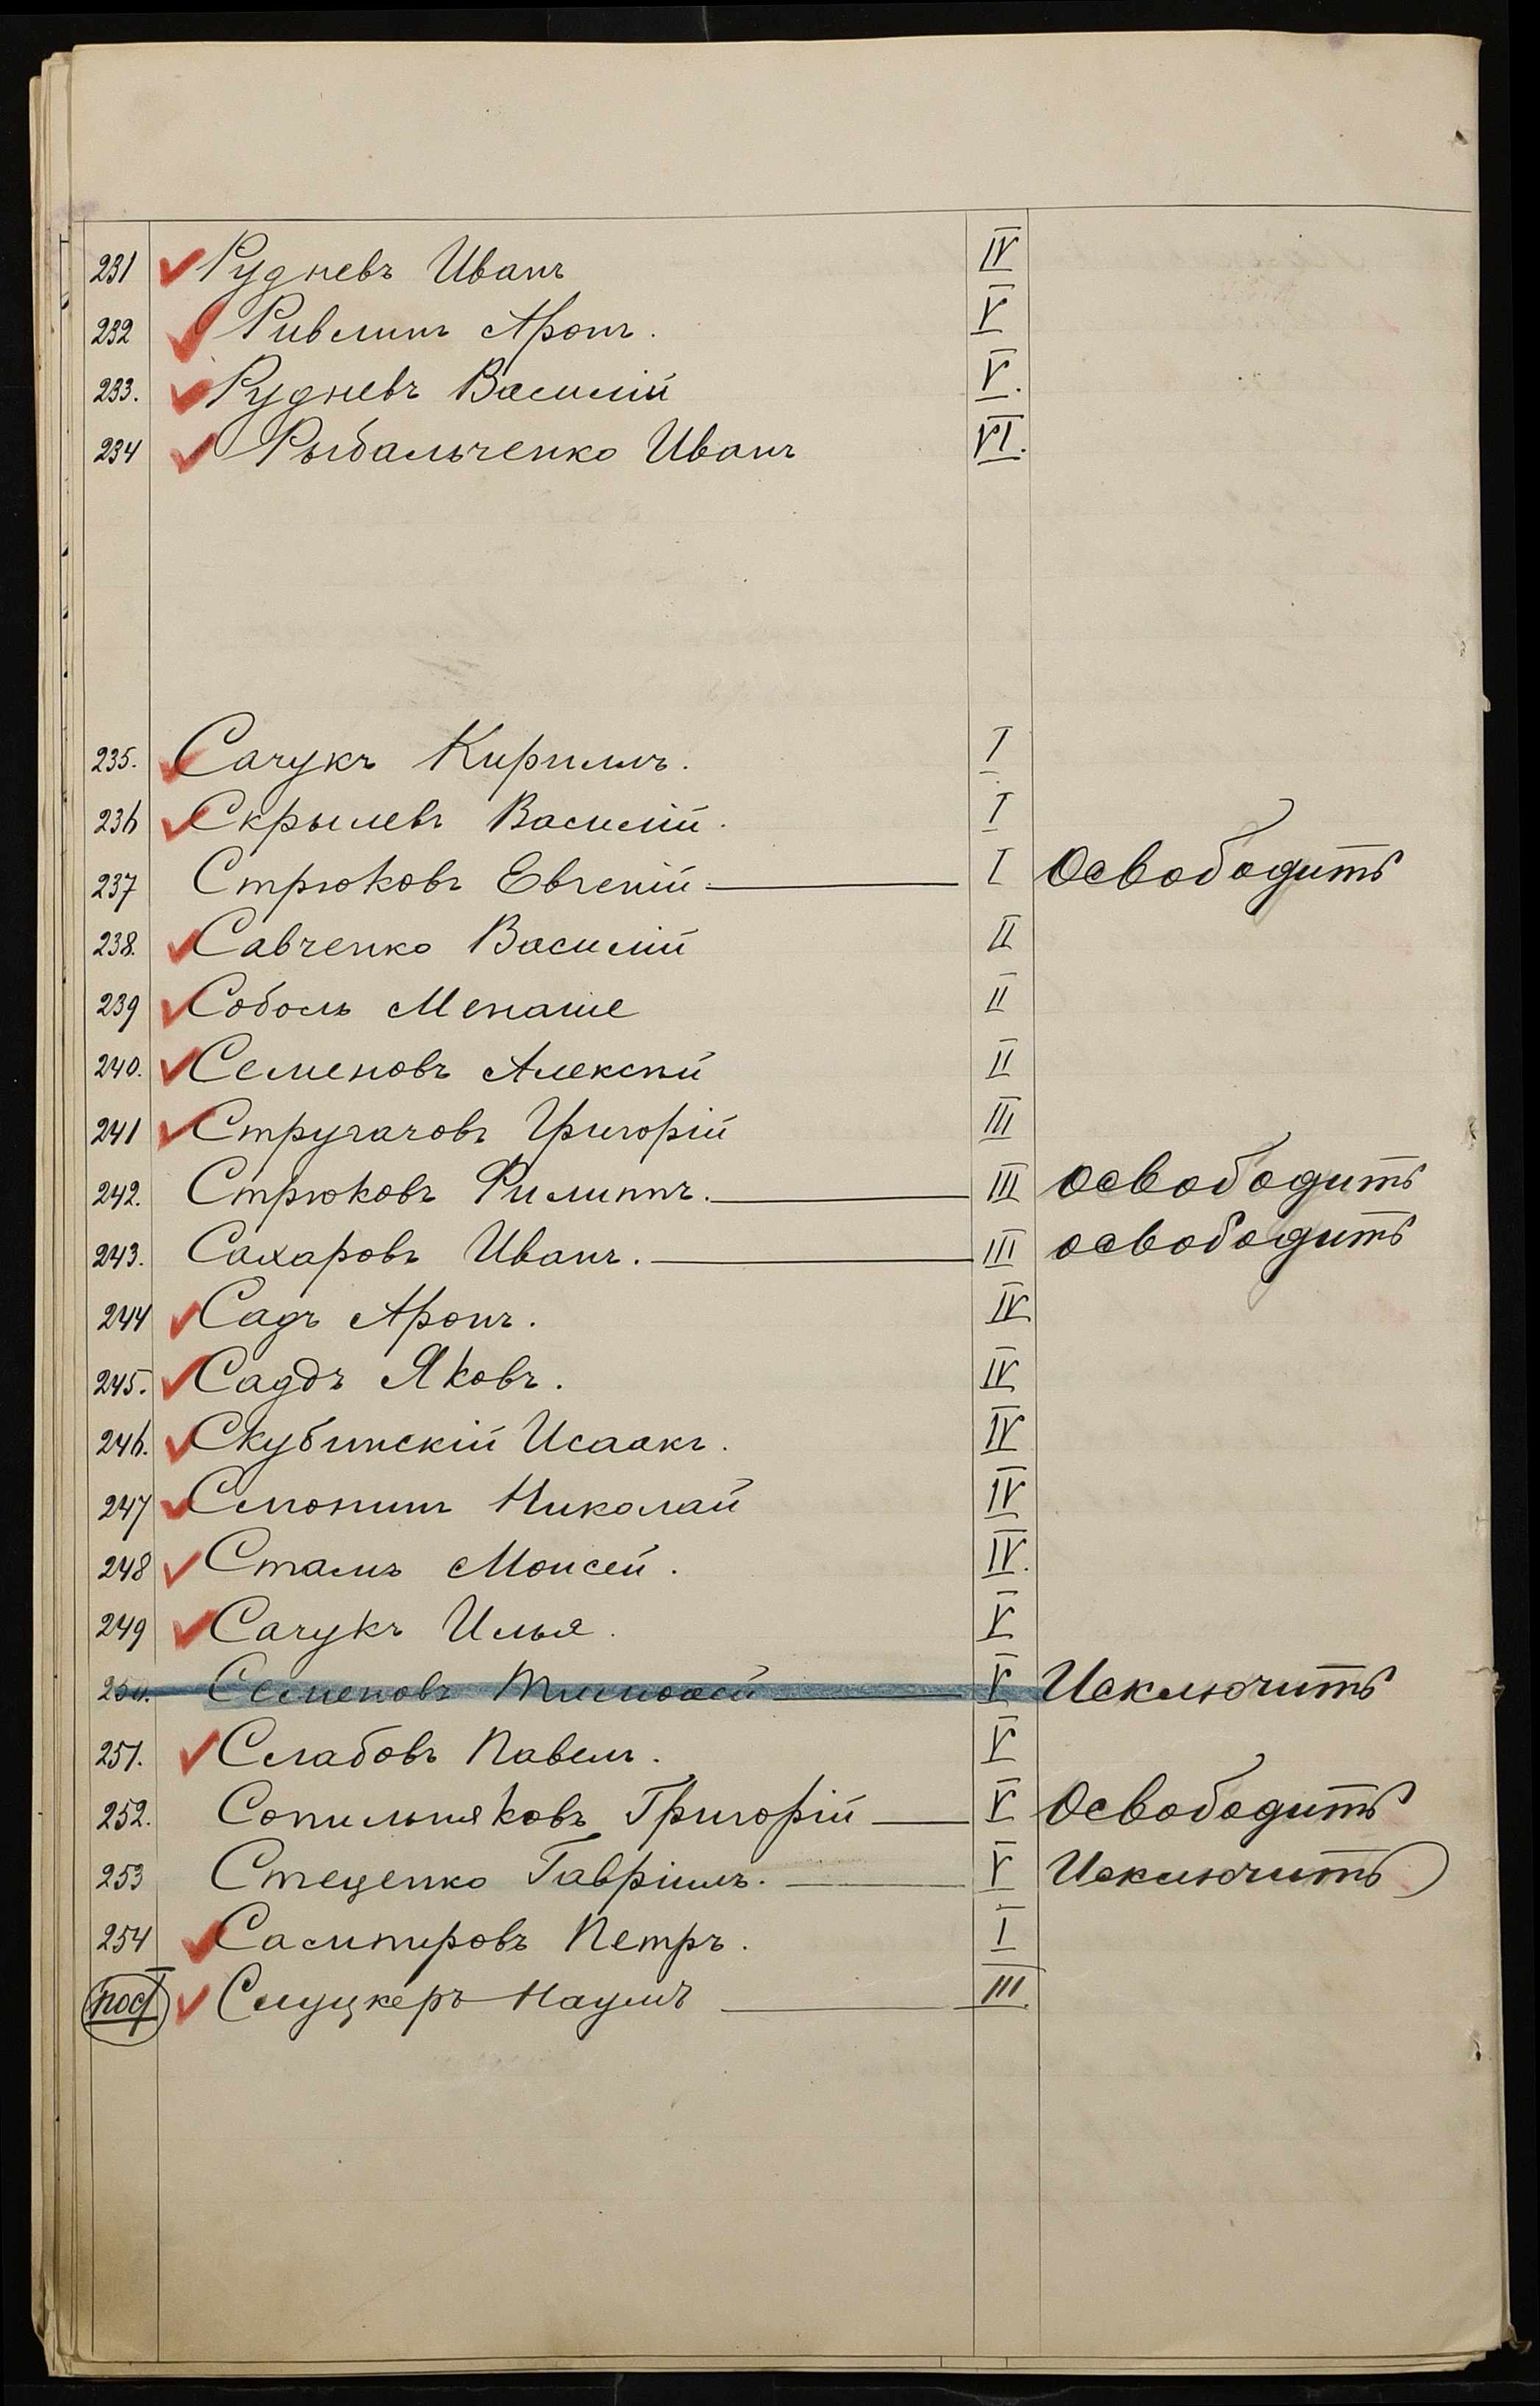 231 Рудневъ Иванъ IV
232 Ривлинъ Аронъ. V
233. Рудневъ Василій V.
234 Рыбальченко Иванъ VI.
235. Сачукъ Кириллъ. I
236 Скрылевъ Василій. I
237 Стрюковъ Евгеній. I Освободить
238. Савченко Василій II
239 Соболь Менаше II
240. Семеновъ Алексѣй II
241 Стругачовъ Григорій III
242. Стрюковъ Филиппъ. III освободить
243. Сахаровъ Иванъ. III освободить
244 Садъ Аронъ. IV
245. Саддъ Яковъ. IV
246. Скубинскій Исаакъ. IV
247 Слонимъ Николай IV
248 Сталь Моисей. IV.
249 Сачукъ Илья. V
250. Семеновъ Тимофей V Исключить
251. Слабовъ Павелъ. V
252. Сопильняковъ Григорій V Освободить
253 Стеценко Гавріилъ. V Исключить
254 Петръ. I
пост Слуцкеръ Наумъ III.